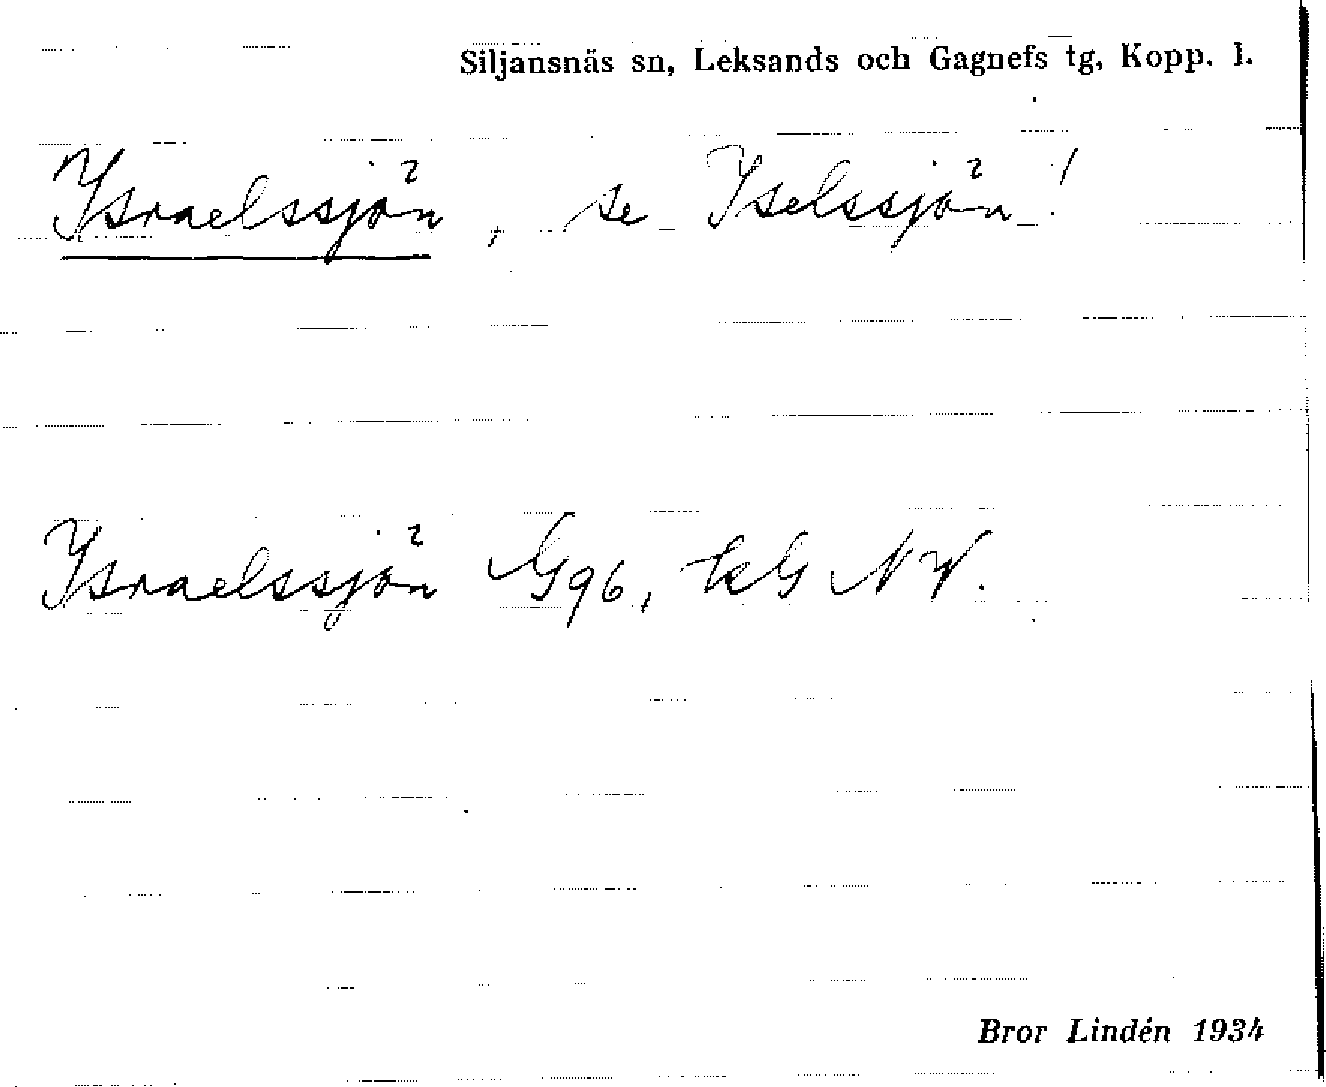 Siljansnäs sn, Leksands och Gagnefs tg, Kopp. l.
Israelssjön, se Iselssjön!
Israelssjön G96, kG NV.
Bror Lindén 1934